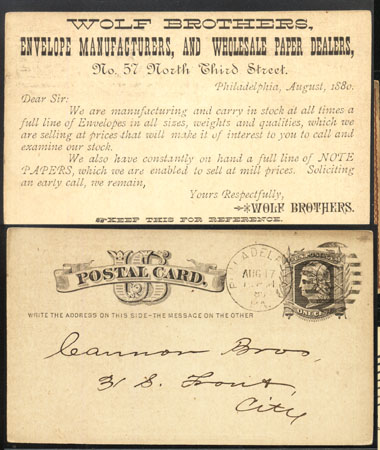 WOLF BROTHERS,
ENVELOPE MANUFACTURERS, AND WHOLESALE PAPER DEALERS,
No. 57 North Third Street.
Philadelphia, August, 1880.
Dear Sir:
We are manufacturing and carry in stock at all times a
full line of Envelopes in all sizes, weights and qualities, which we
are selling at prices that will make it of interest to you to call and
examine our stock.
We also have constantly on hand a full line of NOTE
PAPERS, which we are enabled to sell at mill prices. Soliciting
an early call, we remain,
Yours Respectfully,
WOLF BROTHERS.
KEEP THIS FOR REFERENCE.
US
POSTAL CARD.
PHILADELPHIA
AUG 17
PA.
ONE CENT
WRITE THE ADDRESS ON THIS SIDE-THE MESSAGE ON THE OTHER
Cannon Bros,
31 S. Front,
City